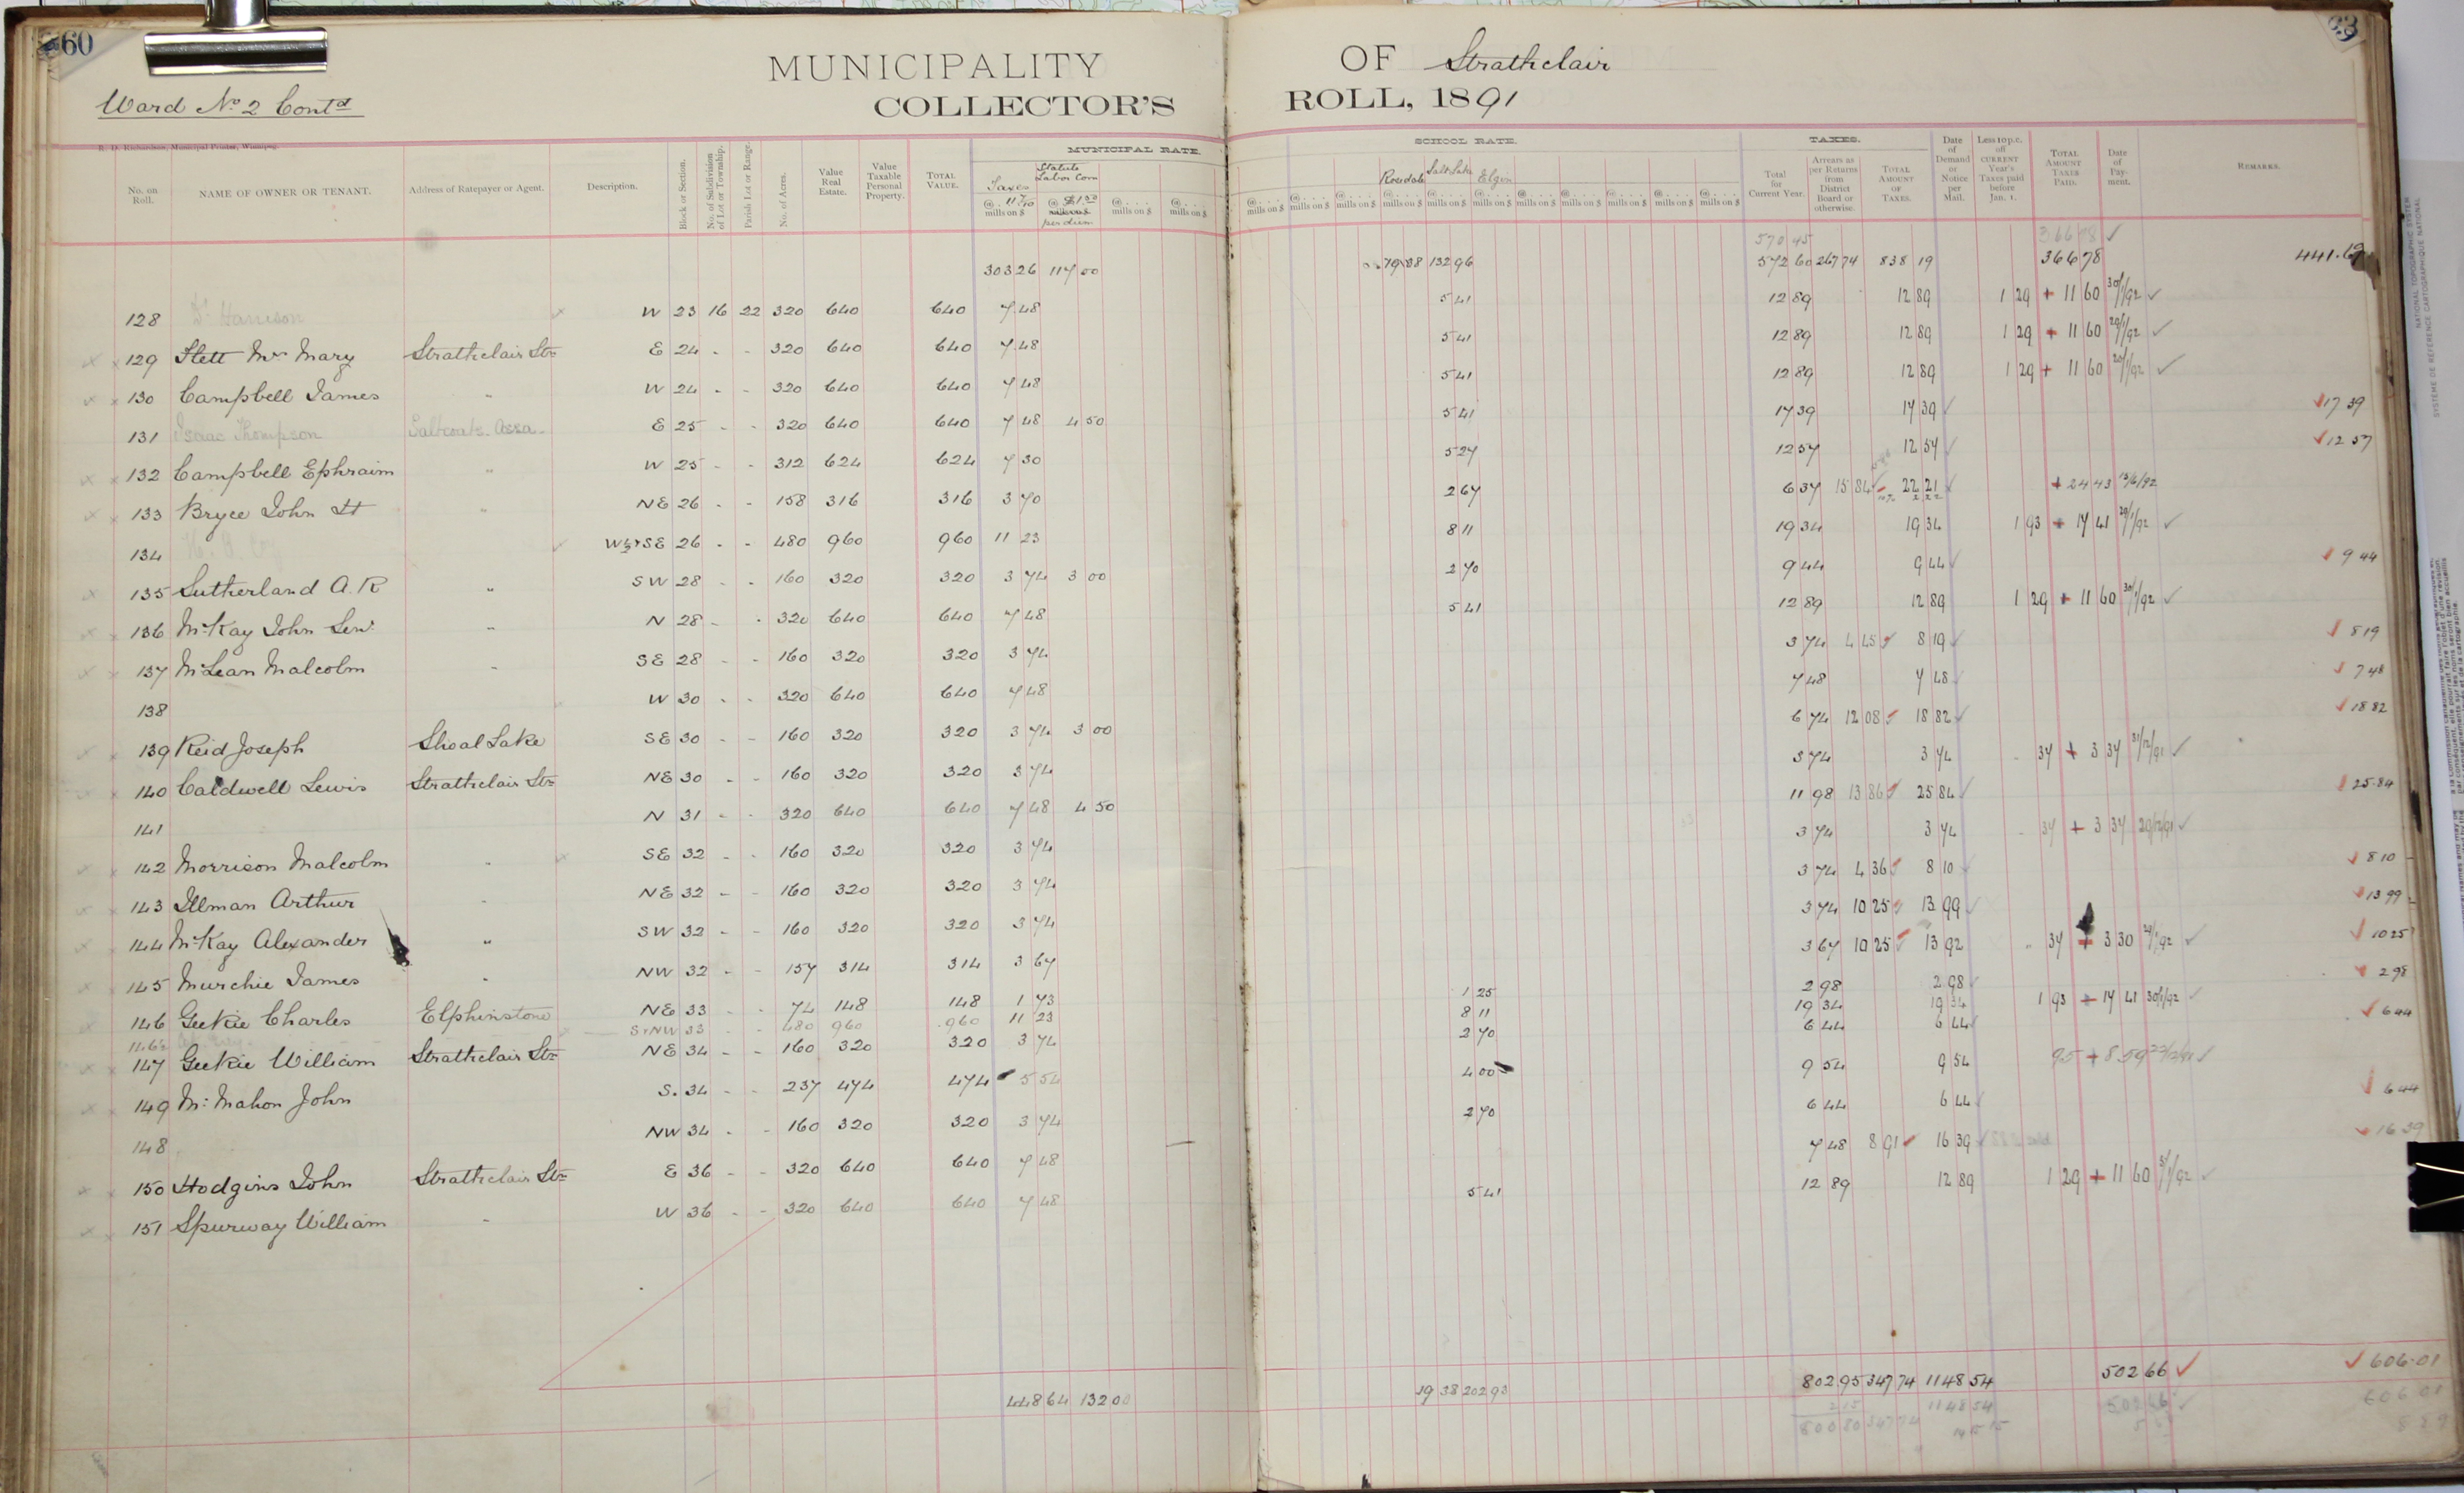 60
MUNICIPALITY OF Strathclair
33
Ward No 2 Contd
COLLECTOR'S ROLL, 1891
R. D. Richardson, Municipal Printer, Winnipeg.
No. on Roll. NAME OF OWNER OR TENANT. Address of Ratepayer or Agent. Description. Block or Section. No. of Subdivision of Lot or Township. Parish Lot or Range. No. of Acres. Value Real Estate. Value Taxable Personal Property. TOTAL VALUE. MUNICIPAL RATE. Taxes @ 11 7/10 mills on $ Statute Labor Com @ $1.50 mills on $ per diem @ . . . . mills on $ @ . . . . mills on $
SCHOOL RATE. Rosedale Salt Lake Elgin TAXES. Total for Current Year. Arrears as per Returns from District Board or otherwise. TOTAL AMOUNT OF TAXES. Date of Demand or Notice per Mail. Less 10 p.c. off CURRENT Year's Taxes paid before Jan. 1. TOTAL AMOUNT TAXES PAID. Date of Payment. REMARKS.
570 45 366 78 ✓
303 26 117 00 79 88 132 96 572 60 267 74 838 19 366 78 441.19
128 Harrison W 23 16 22 320 640 640 7 48 5 41 12 89 12 89 1 29 + 11 60 30/1/92 ✓
129 Flett Mrs Mary Strathclair Stn E 24 - - 320 640 640 7 48 5 41 12 89 12 89 1 29 + 11 60 29/1/92 ✓
130 Campbell James " W 24 - - 320 640 640 7 48 5 41 12 89 12 89 1 29 + 11 60 20/1/92 ✓
131 Isaac Thompson Saltcoats Assa. E 25 - - 320 640 640 7 48 4 50 5 41 17 39 17 39 ✓ ✓17 39
132 Campbell Ephraim " W 25 - - 312 624 624 7 30 5 27 12 57 12 57 ✓ ✓12 57
133 Bryce John St " NE 26 - - 158 316 316 3 70 2 67 6 37 15 84 22 21 ✓ + 24 43 15/6/92
134 W½+SE 26 - - 480 960 960 11 23 8 11 19 34 19 34 1 93 + 17 41 29/1/92 ✓
135 Sutherland A. R " SW 28 - - 160 320 320 3 74 3 00 2 70 9 44 9 44 ✓ ✓ 9 44
136 McKay John Senr " N 28 - - 320 640 640 7 48 5 41 12 89 12 89 1 29 + 11 60 30/1/92 ✓
137 McLean Malcolm " SE 28 - - 160 320 320 3 74 3 74 4 45 ✓ 8 19 ✓ ✓ 8 19
138 W 30 - - 320 640 640 7 48 7 48 7 48 ✓ ✓ 7 48
139 Reid Joseph Shoal Lake SE 30 - - 160 320 320 3 74 3 00 6 74 12 08 ✓ 18 82 ✓ ✓18 82
140 Caldwell Lewis Strathclair Stn NE 30 - - 160 320 320 3 74 3 74 3 74 37 + 3 37 31/12/91 ✓
141 N 31 - - 320 640 640 7 48 4 50 11 98 13 86 ✓ 25 84 ✓ ✓ 25.84
142 Morrison Malcolm " SE 32 - - 160 320 320 3 74 3 74 3 74 37 + 3 37 29/12/91 ✓
143 Illman Arthur " NE 32 - - 160 320 320 3 74 3 74 4 36 ✓ 8 10 ✓ 8 10
144 McKay Alexander " SW 32 - - 160 320 320 3 74 3 74 10 25 ✓ 13 99 ✓ ✓13 99
145 Murchie James " NW 32 - - 157 314 314 3 67 3 67 10 25 ✓ 13 92 37 + 3 30 29/1/92 ✓ ✓ 10 25
146 Geekie Charles Elphinstone NE 33 - - 74 148 148 1 73 1 25 2 98 2 98 ✓ ✓ 2 98
S+NW 33 - - 480 960 960 11 23 8 11 19 34 19 34 1 93 + 17 41 30/1/92 ✓
147 Geekie William Strathclair Stn NE 34 - - 160 320 320 3 74 2 70 6 44 6 44 ✓ ✓ 6 44
149 Mc Mahon John S. 34 - - 237 474 474 5 54 4 00 9 54 9 54 95 + 8 59 22/12/91 ✓
148 NW 34 - - 160 320 320 3 74 2 70 6 44 6 44 ✓ ✓ 6 44
150 Hodgins John Strathclair Stn E 36 - - 320 640 640 7 48 7 48 8 91 ✓ 16 39 ✓ ✓ 16 39
151 Spurway William " W 36 - - 320 640 640 7 48 5 41 12 89 12 89 1 29 + 11 60 31/1/92 ✓
448 64 132 00 79 38 202 93 802 95 347 74 1148 54 502 66 ✓ ✓ 606.01
2 15 1148 54 502 66 ✓ 606 01
800 80 347 74